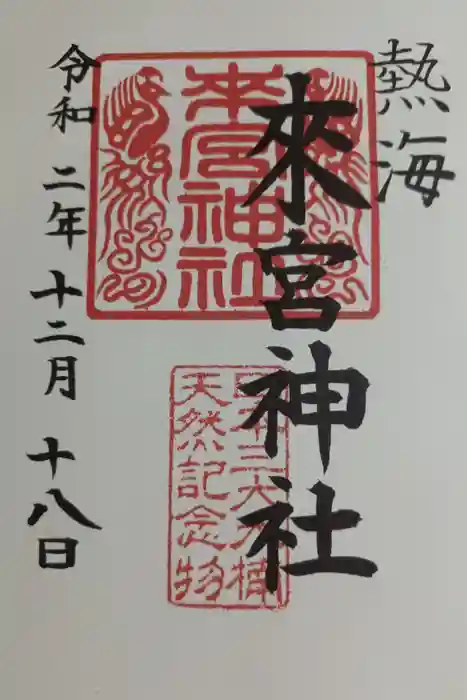 熱海
來宮神社
來宮神社
日本三大大楠
天然記念物
令和二年十二月十八日